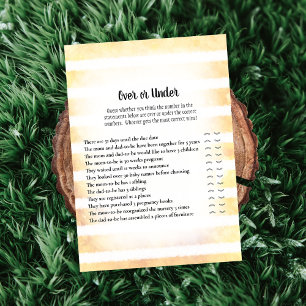 Over or Under
Guess whether you think the number in the
statements below are over or under the correct
numbers. Whoever gets the most correct wins!
There are 31 days until the due date
The mom and dad-to-be have been together for 5 years
The mom and dad-to-be would like to have 3 children
The mom-to-be is 30 weeks pregnant
They waited until 12 weeks to announce
They looked over 30 baby names before choosing
The mom-to-be has 1 sibling
The dad-to-be has 3 siblings
They are registered at 2 places
They have purchased 3 pregnancy books
The mom-to-be reorganized the nursery 2 times
The dad-to-be has assembled 2 pieces of furniture